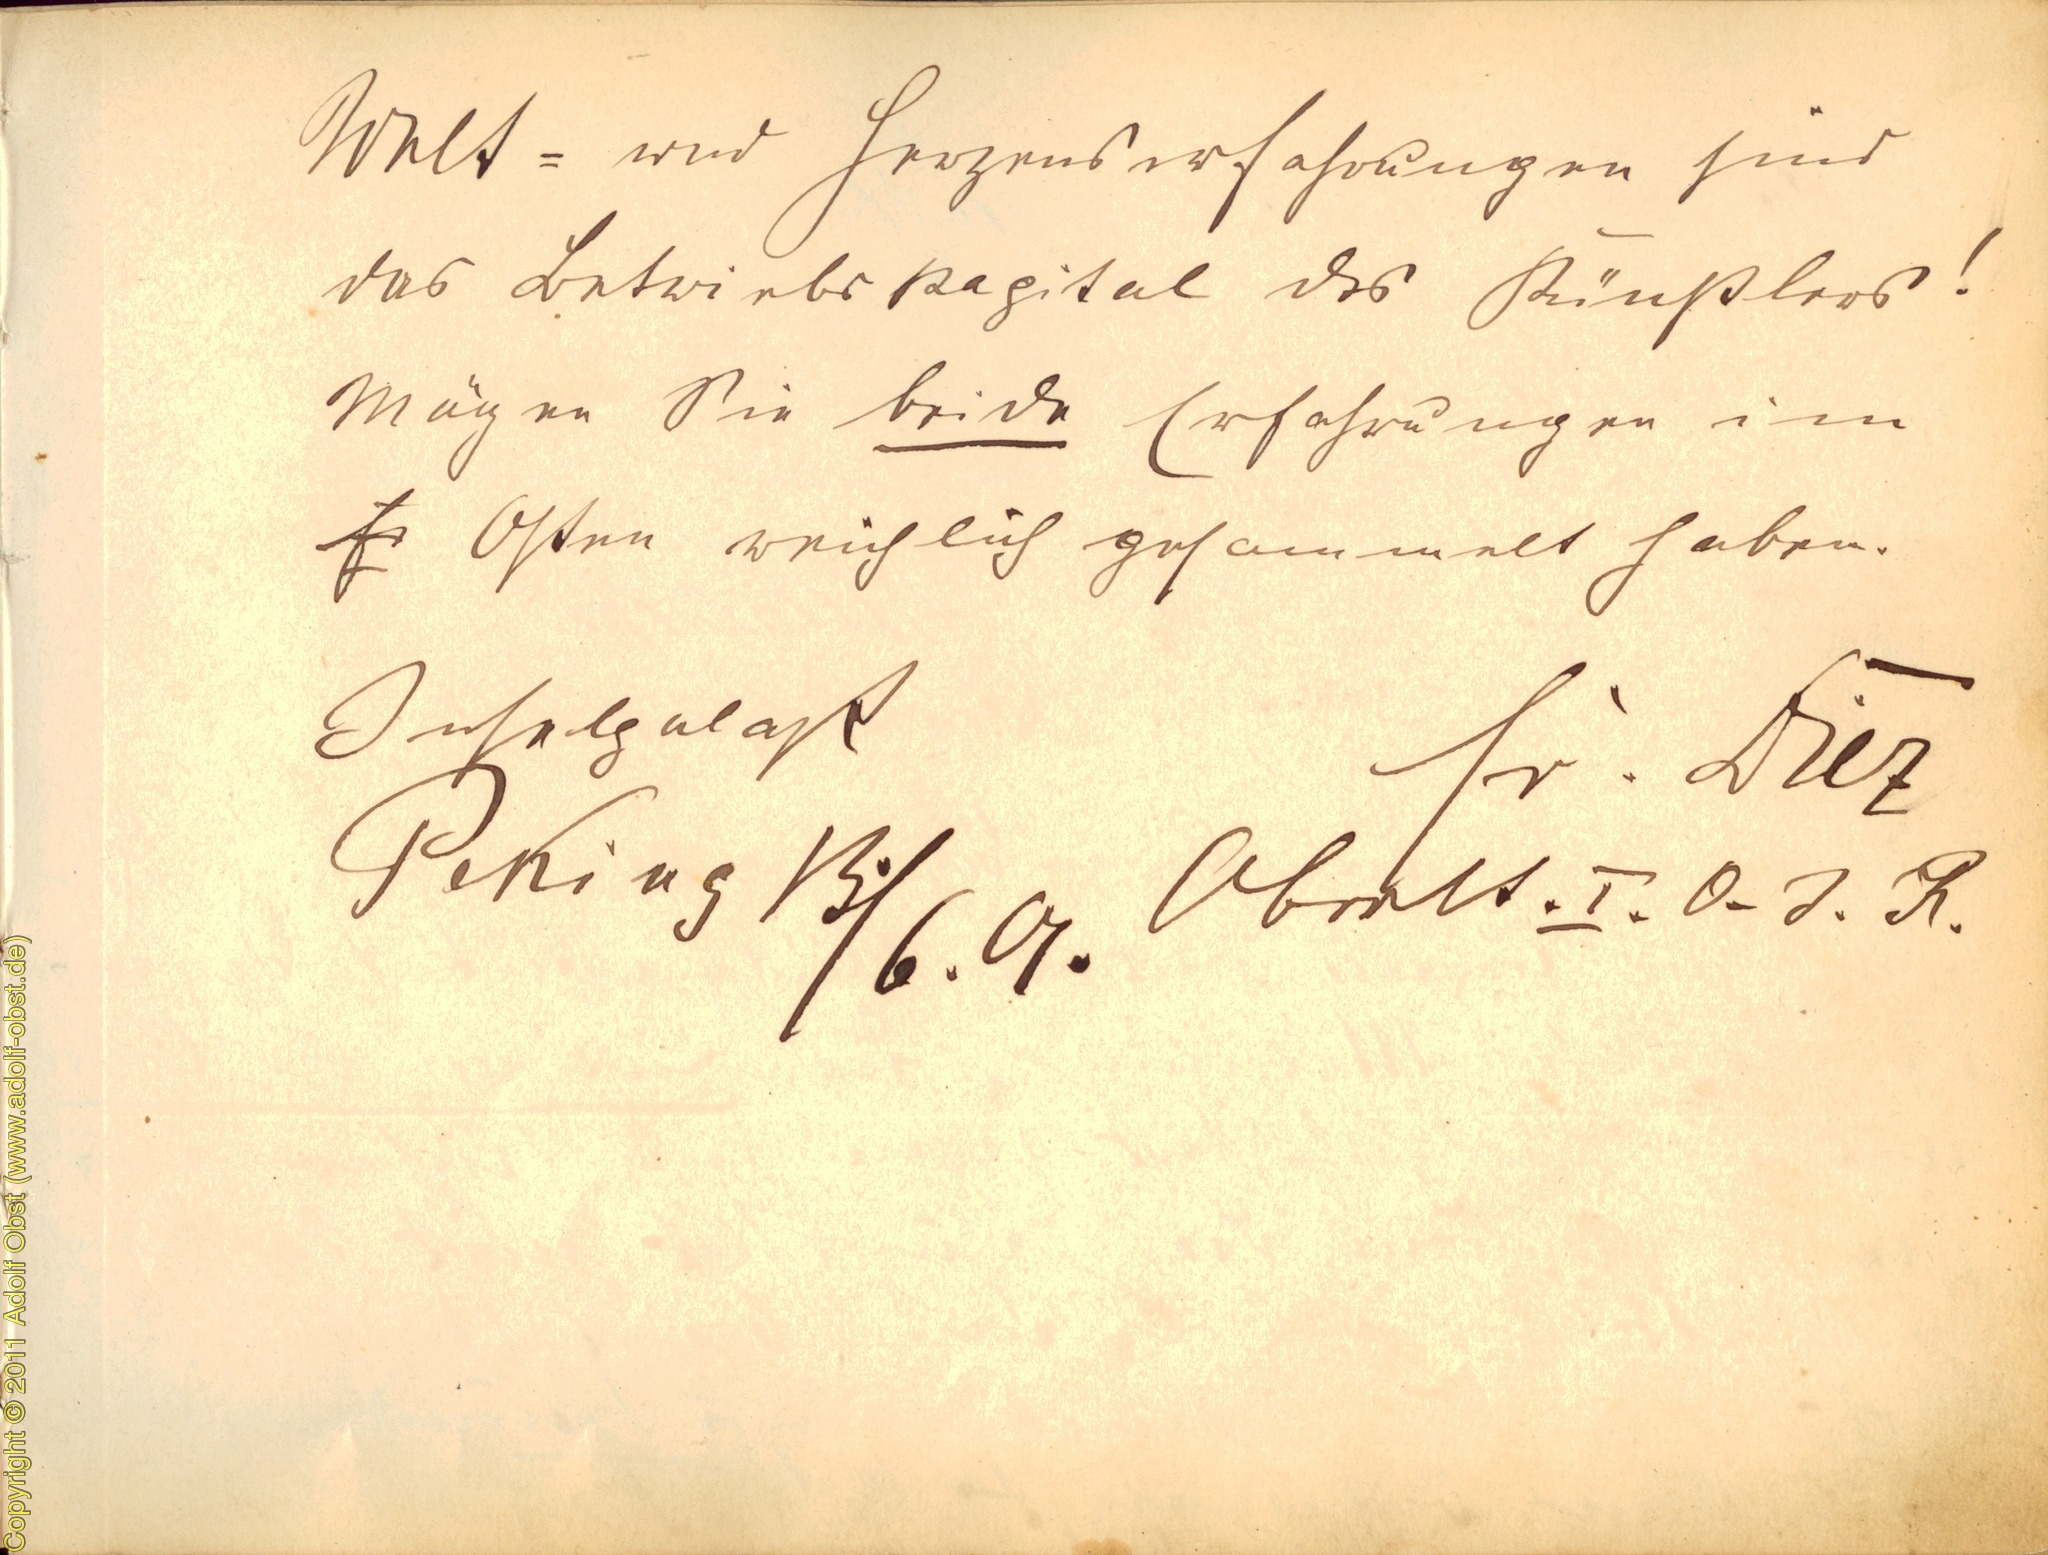 Welt- und Herzenserfahrungen sind
das Betriebskapital des Künstlers!
Mögen Sie beide Erfahrungen im
Osten reichlich gesammelt haben.
Inselpalast
Peking 13/6. 01.
Fr. Diez
Oberlt. I. O. J. R.
Copyright © 2011 Adolf Obst (www.adolf-obst.de)